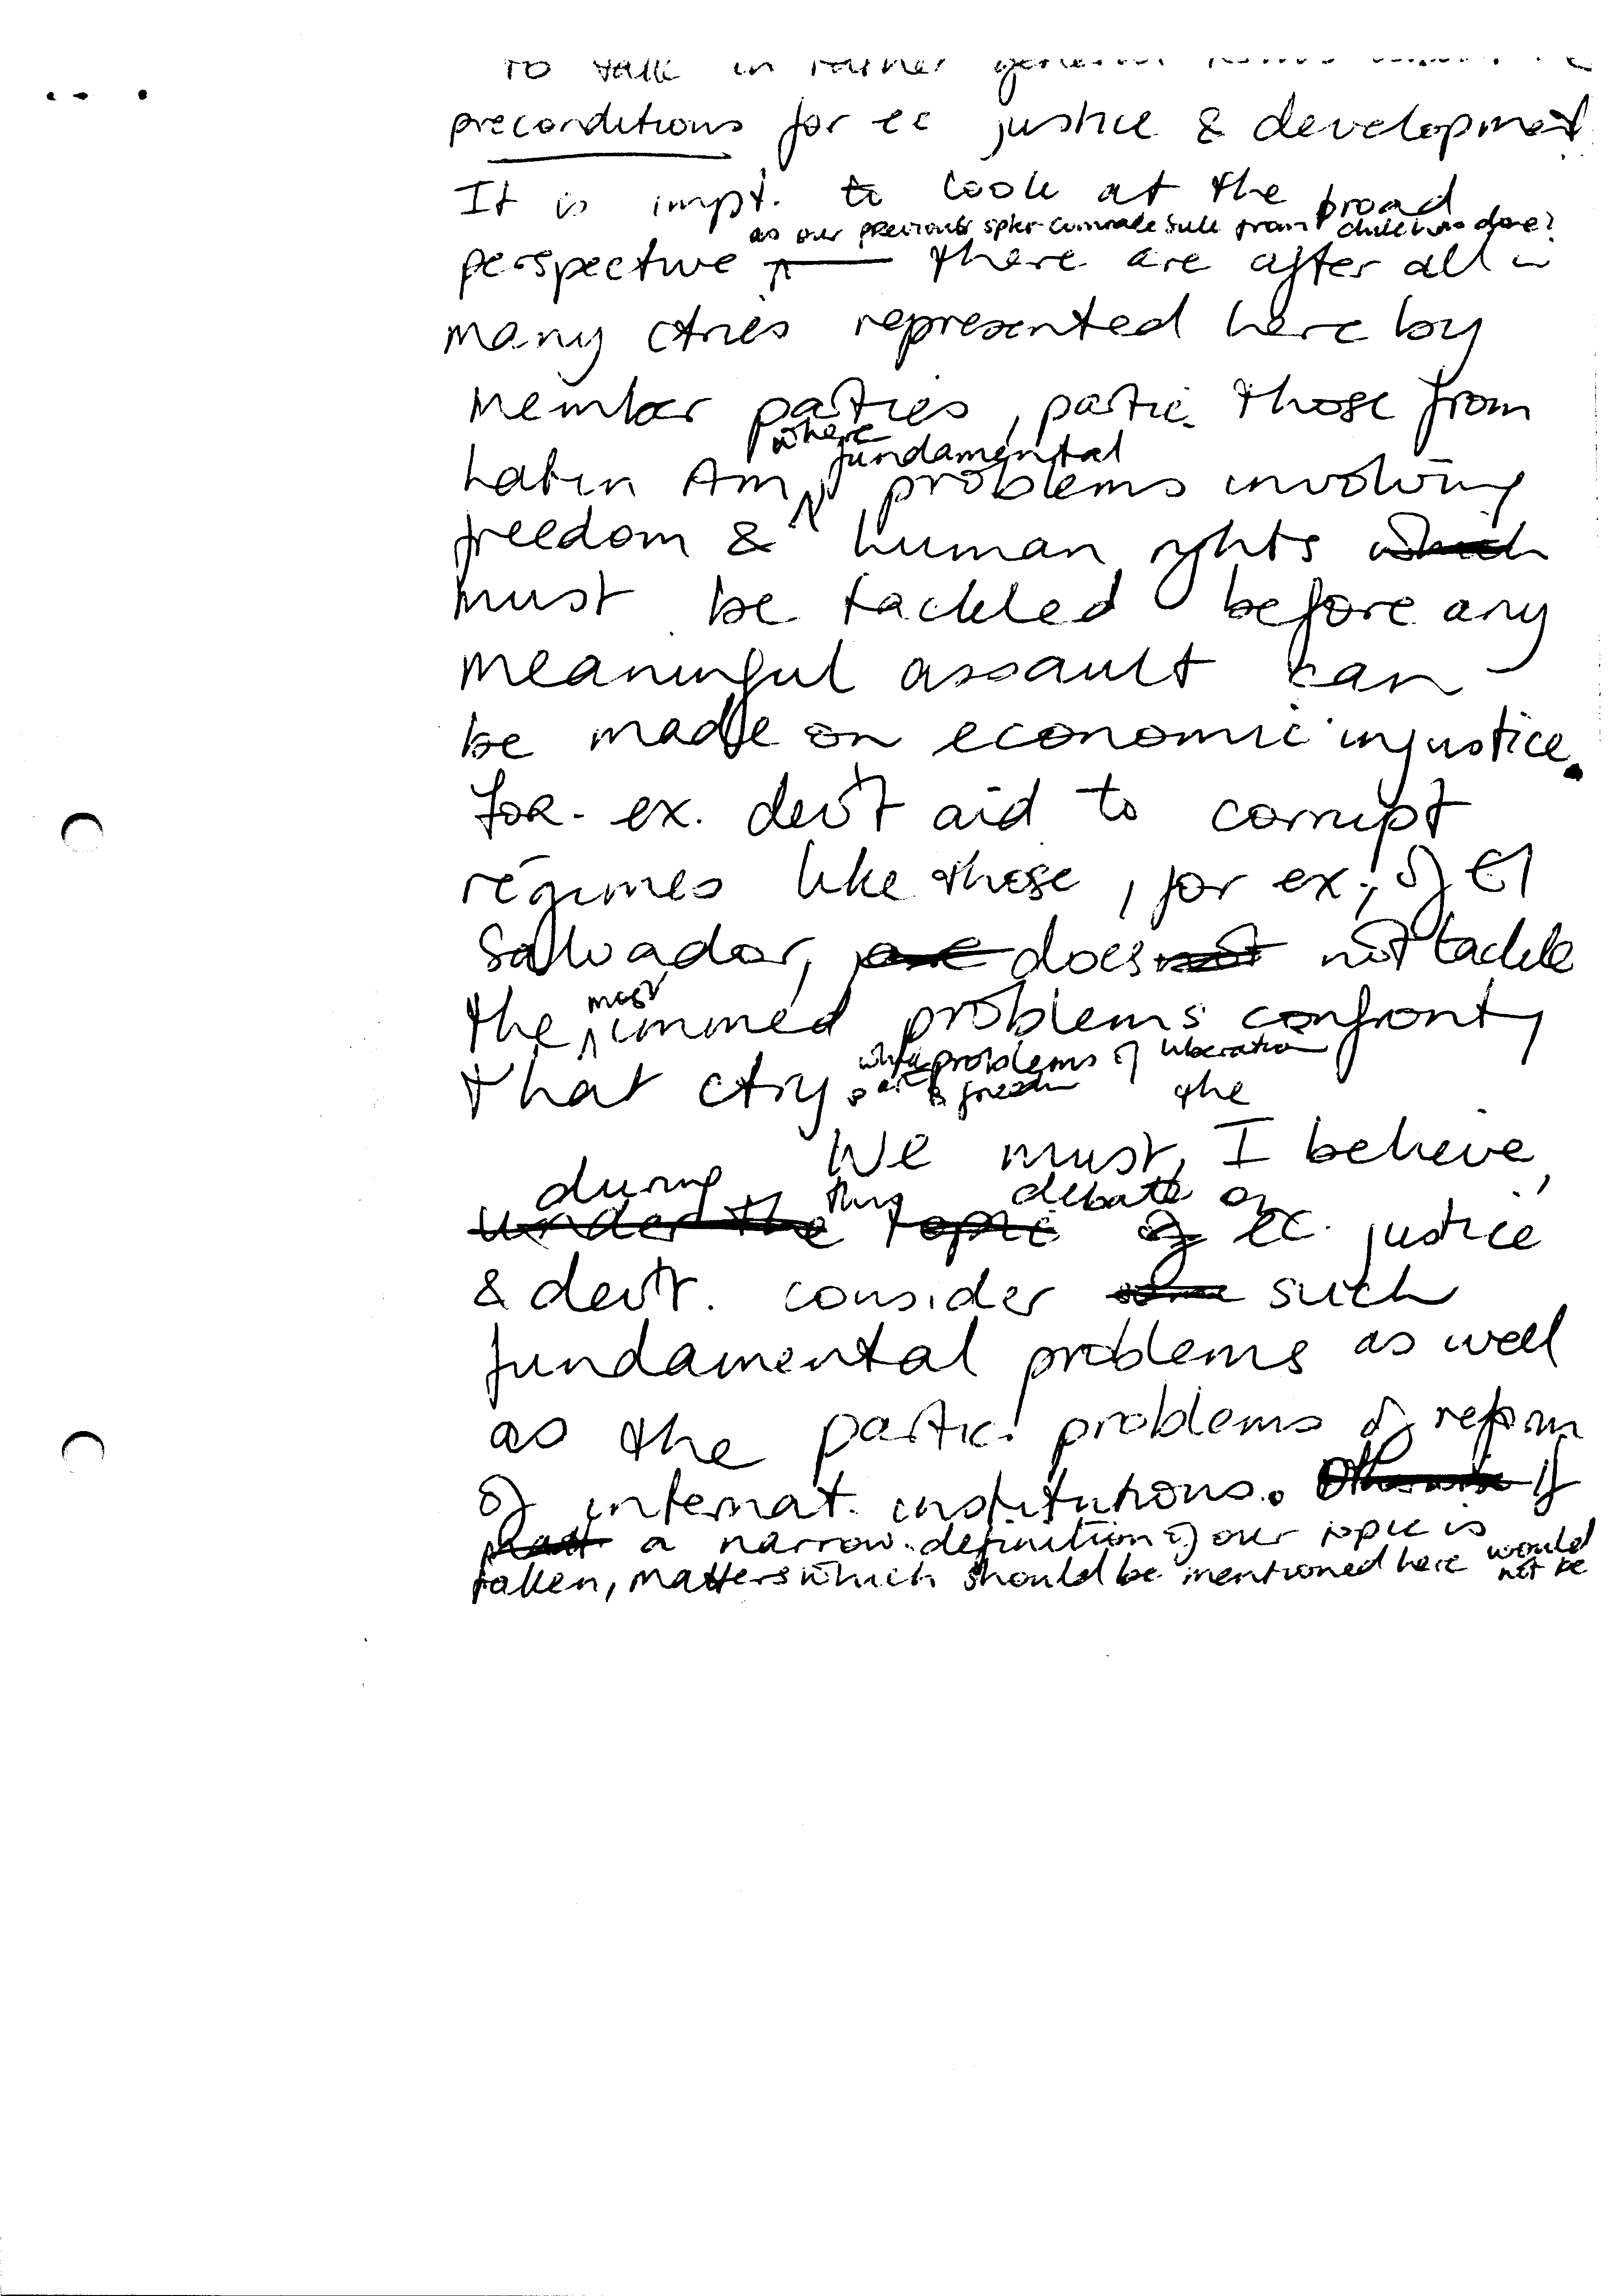 to talk in rather general
preconditions for ec justice & development
It is impt. to look at the broad
as our previous spker comrade Sule from Chile has done?
perspective — there are after all in
many ctries represented here by
member parties, partic. those from
where fundamental
Latin Am problems involving
freedom & human rghts which
must be tackled before any
meaningful assault can
be made on economic injustice.
for. ex. dev't aid to corrupt
régimes like those, for ex; of El
Salvador, are does not not tackle
most
the immed problems confronty
which problems of liberation
that ctry. are & freedom the
We must, I believe,
during this debate on
under the topic of ec. justice
& dev't. consider some such
fundamental problems as well
as the partic. problems of reform
of internat. institutions. Otherwise If
a narrow definition of our topic is
taken, matters which should be mentioned here would
not be